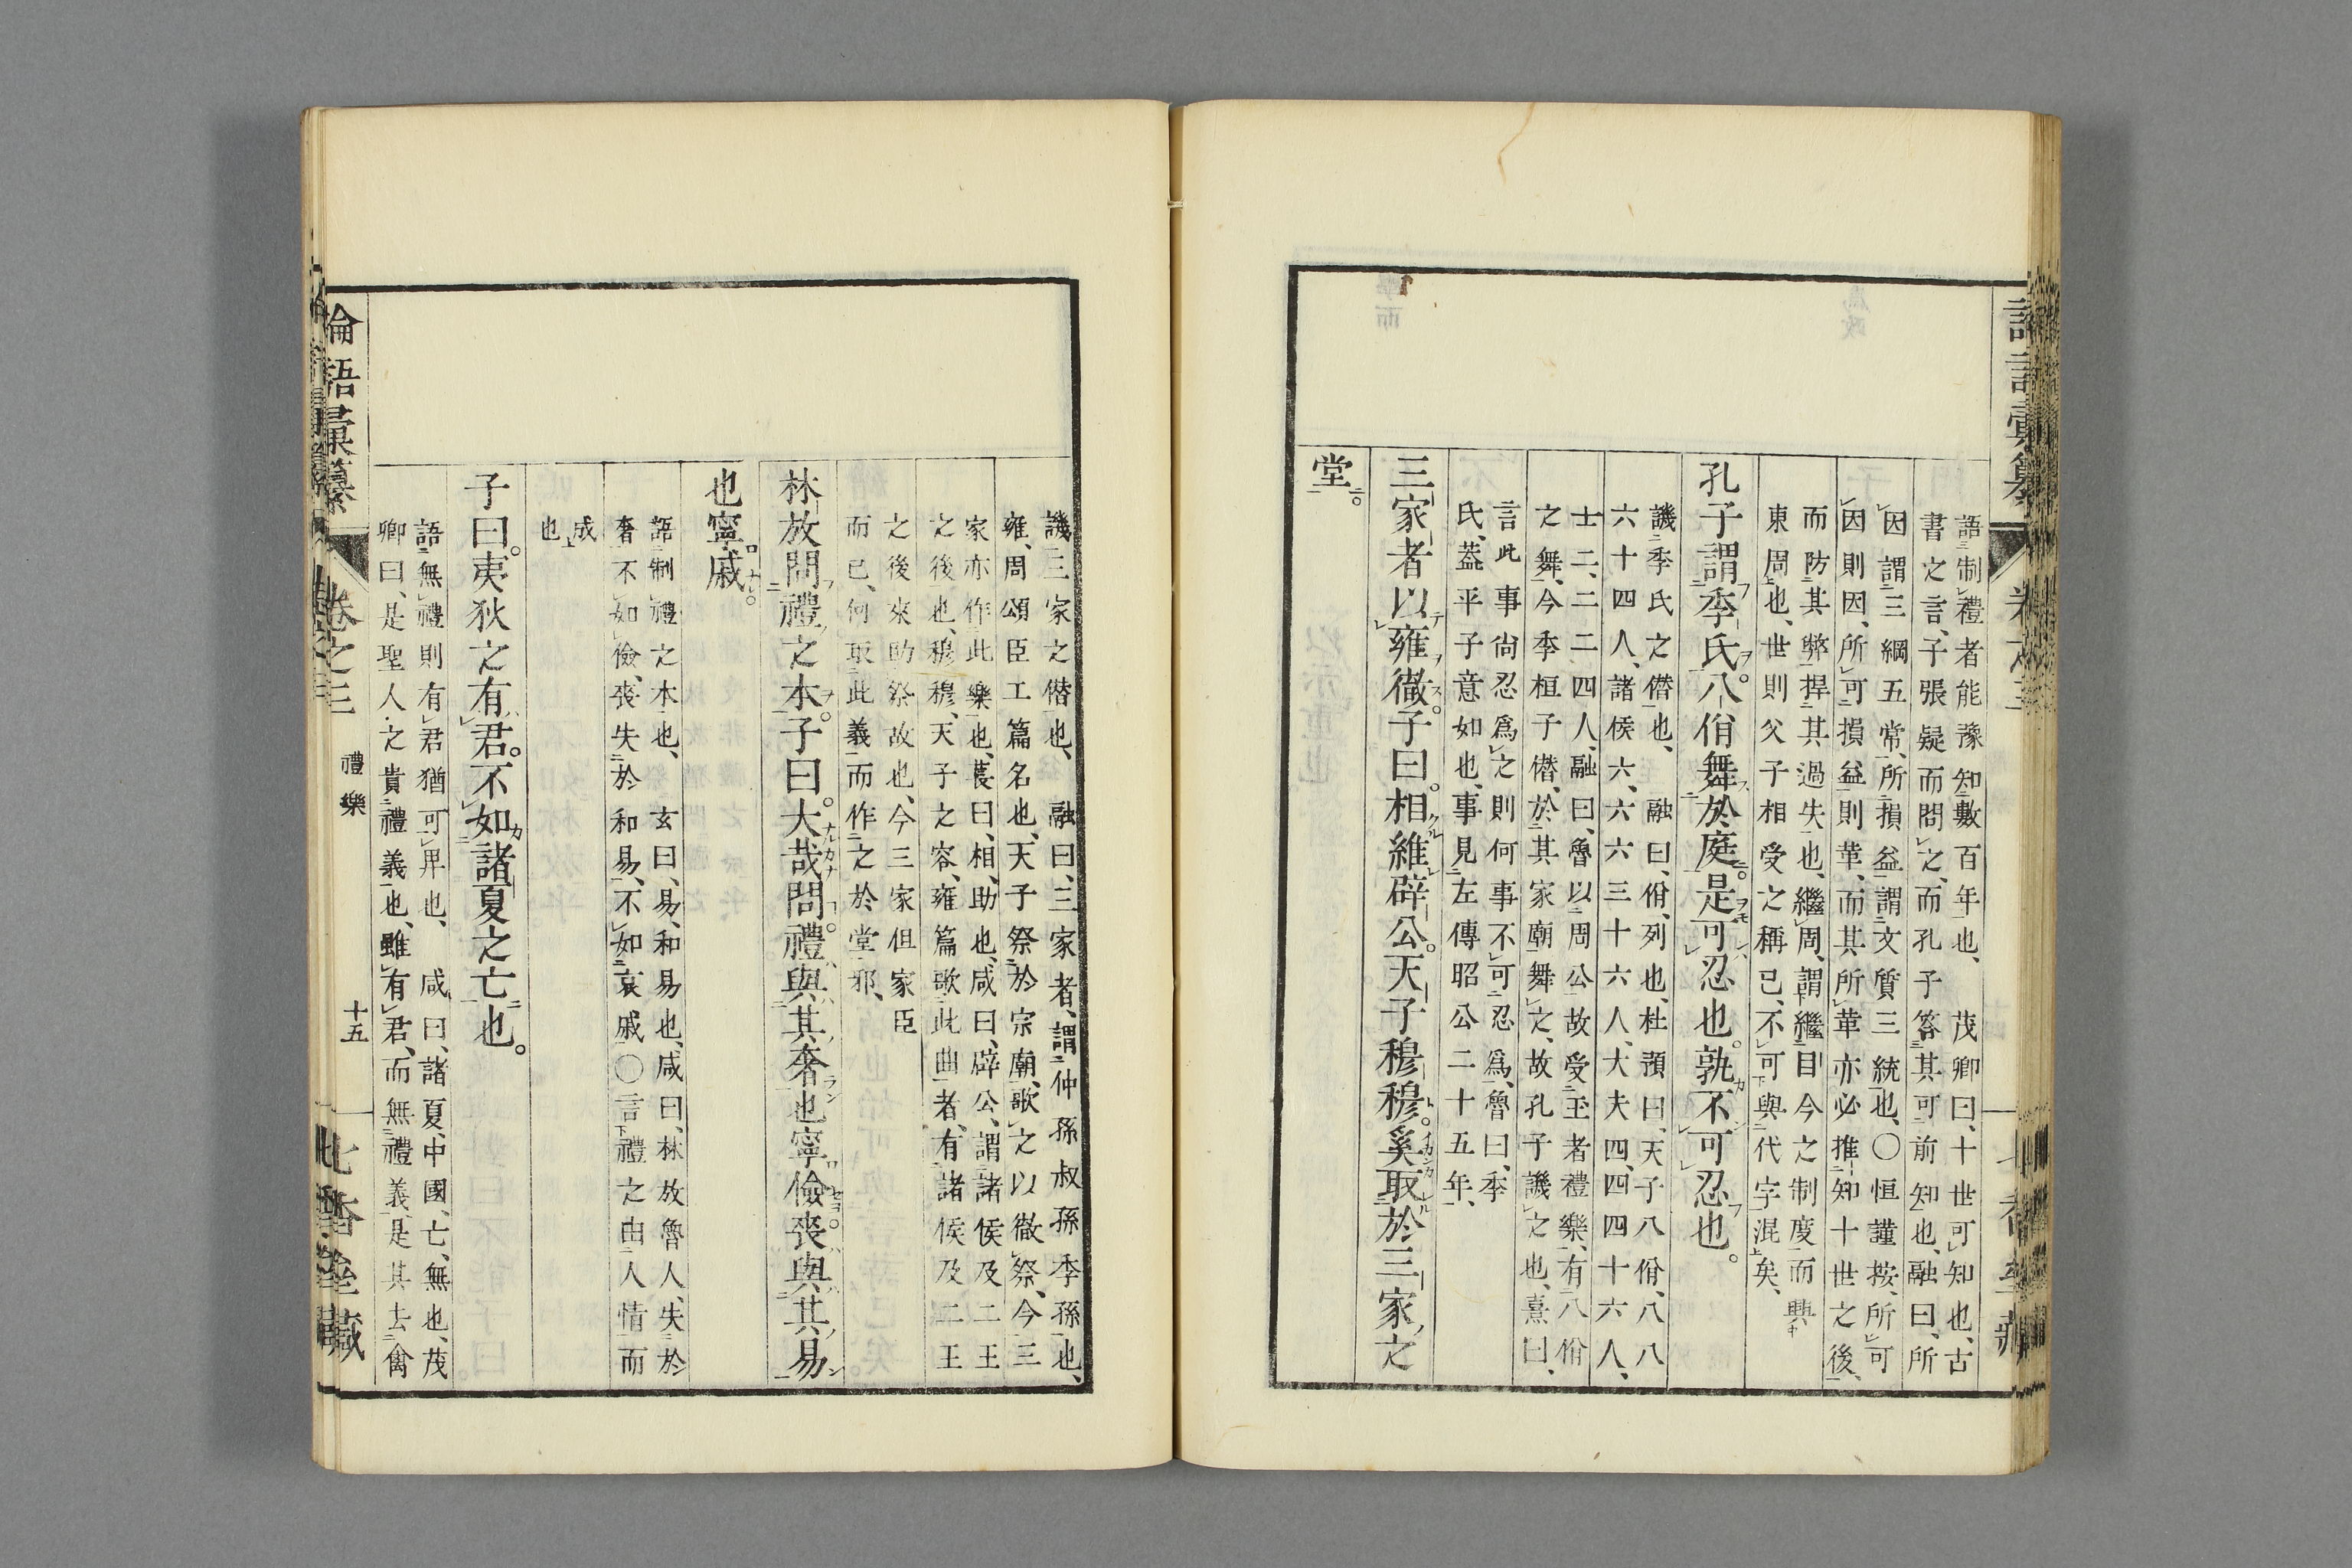 語制禮者能豫知數百年也、茂卿曰、十世可知也、古
書之言、子張疑而問之、而孔子答其可前知也、融曰、所
因謂三綱五常、所損益謂文質三統也、〇恒謹按、所可
因則因、所可損益則革、而其所革亦必推知十世之後、
而防其弊捍其過失也、繼周、謂繼目今之制度而興
東周也、世則父子相受之稱已、不可與代字混矣、
孔子謂季氏。八佾舞於庭。是可忍也。孰不可忍也。
譏季氏之僭也、融曰、佾、列也、杜預曰、天子八佾、八八
六十四人、諸侯六、六六三十六人、大夫四、四四十六人、
士二、二二四人、融曰、魯以周公故受王者禮樂、有八佾
之舞、今季桓子僭、於其家廟舞之、故孔子譏之也、熹曰、
言此事尙忍爲之則何事不可忍爲、魯曰、季
氏、葢平子意如也、事見左傳昭公二十五年、
三家者以雍徹。子曰。相維辟公。天子穆穆。奚取於三家之
堂。
譏三家之僭也、融曰、三家者、謂仲孫叔孫季孫也、
雍、周頌臣工篇名也、天子祭於宗廟、歌之以徹祭、今三
家亦作此樂也、萇曰、相、助也、咸曰、辟公、謂諸侯及二王
之後也、穆穆、天子之容、雍篇歌此曲者、有諸侯及二王
之後來助祭故也、今三家但家臣
而已、何取此義而作之於堂邪、
林放問禮之本。子曰。大哉問。禮與其奢也寧儉。喪與其易
也寧戚。
語制禮之本也、玄曰、易、和易也、咸曰、林放魯人、失於
奢不如儉、喪失於和易、不如哀戚〇言禮之由人情而
成
也
子曰。夷狄之有君。不如諸夏之亡也。
語無禮則有君猶可畀也、咸曰、諸夏、中國、亡、無也、茂
卿曰、是聖人之貴禮義也、雖有君、而無禮義、是其去禽
論語彙纂 卷之三 禮樂 十五